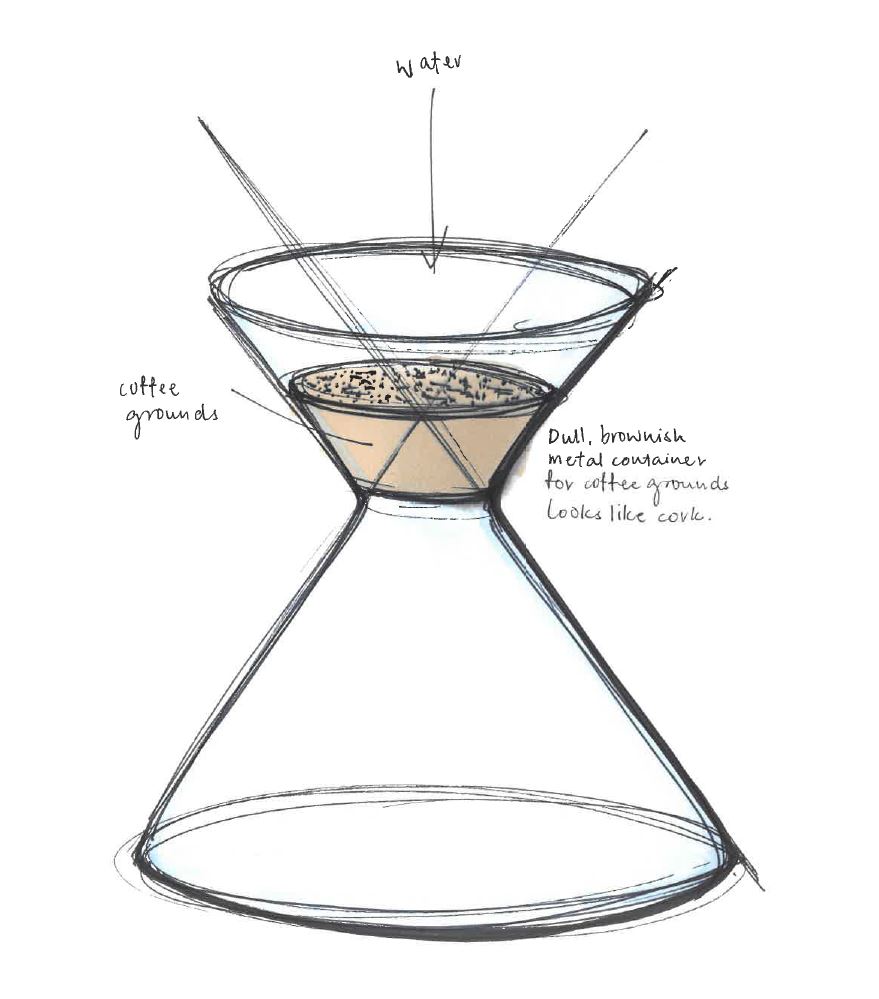 water
coffee
grounds
Dull, brownish
metal container
for coffee grounds
Looks like cork.